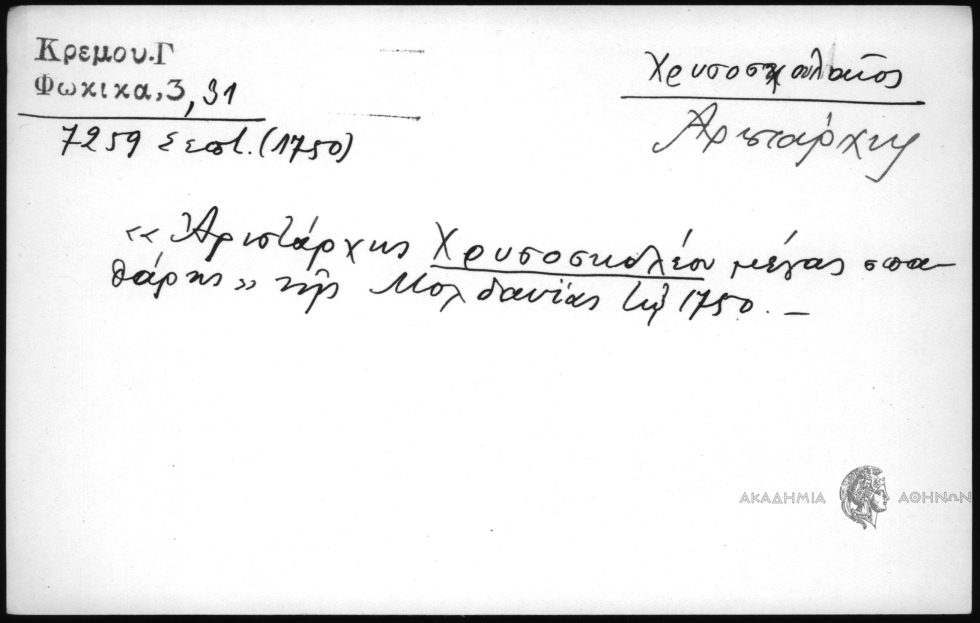 Κρεμου.Γ
Φωκικα,3,31
7259 Σεπτ. (1750)
Χρυσοσκουλαῖος
Ἀριστάρχης
«Ἀριστάρχης Χρυσοσκολέου μέγας σπα-
θάρης» τῆς Μολδαυΐας τῷ 1750. –
ΑΚΑΔΗΜΙΑ ΑΘΗΝΩΝ